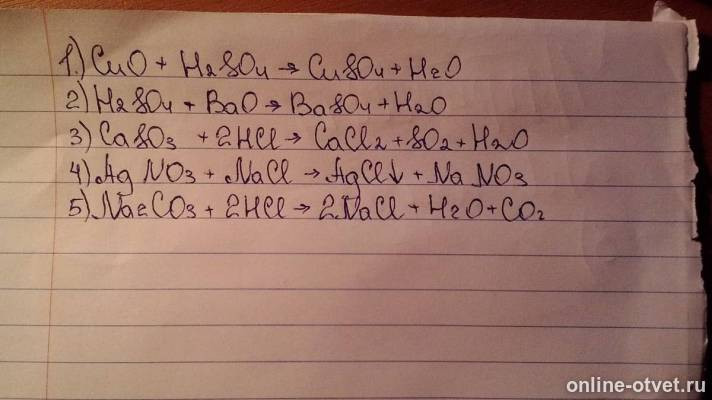 1.) CuO + H2SO4 → CuSO4 + H2O
2) H2SO4 + BaO → BaSO4 + H2O
3) CaSO3 + 2HCl → CaCl2 + SO2 + H2O
4) AgNO3 + NaCl → AgCl↓ + NaNO3
5) Na2CO3 + 2HCl → 2NaCl + H2O + CO2
online-otvet.ru